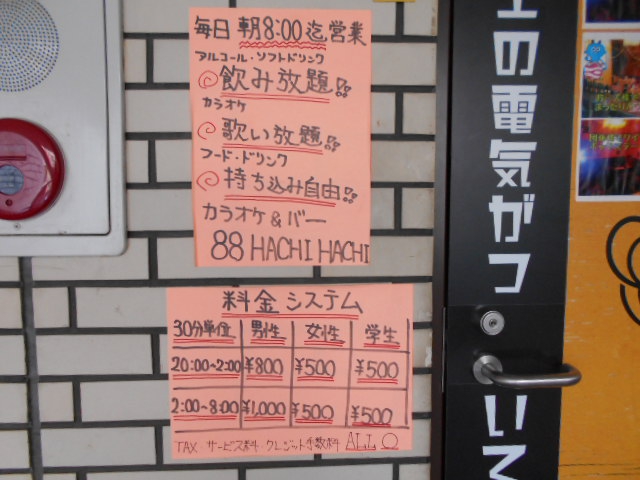 毎日 朝8:00迄営業
アルコール・ソフトドリンク
飲み放題!!
カラオケ
歌い放題!!
フード・ドリンク
持ち込み自由!!
カラオケ&バー
88 HACHI HACHI
料金システム
30分単位 男性 女性 学生
20:00~2:00 ¥800 ¥500 ¥500
2:00~8:00 ¥1,000 ¥500 ¥500
TAX サービス料 クレジット手数料 ALL 0
の電気がつ
いて